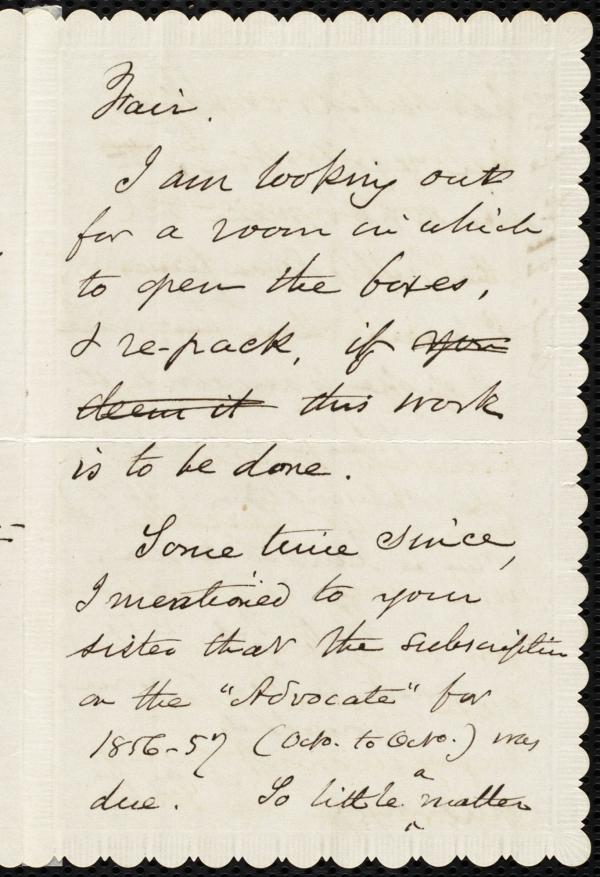 Fair.
I am looking out
for a room in which
to open the boxes,
& re-pack, if ~~you~~
~~deem it~~ this work
is to be done.
Some time since,
I mentioned to your
sister that the subscription
on the "Advocate" for
1856-57 (Octo. to Octo.) was
due. So little ^a matter